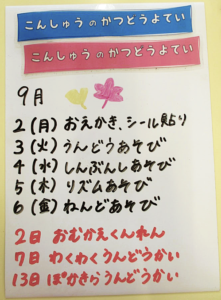 こんしゅうのかつどうよてい
こんしゅうのかつどうよてい
9月
2(月)おえかき、シール貼り
3(火)うんどうあそび
4(水)しんぶんしあそび
5(木)リズムあそび
6(金)ねんどあそび
2日 おむかえくんれん
7日 わくわくうんどうかい
13日 ぽかきらうんどうかい